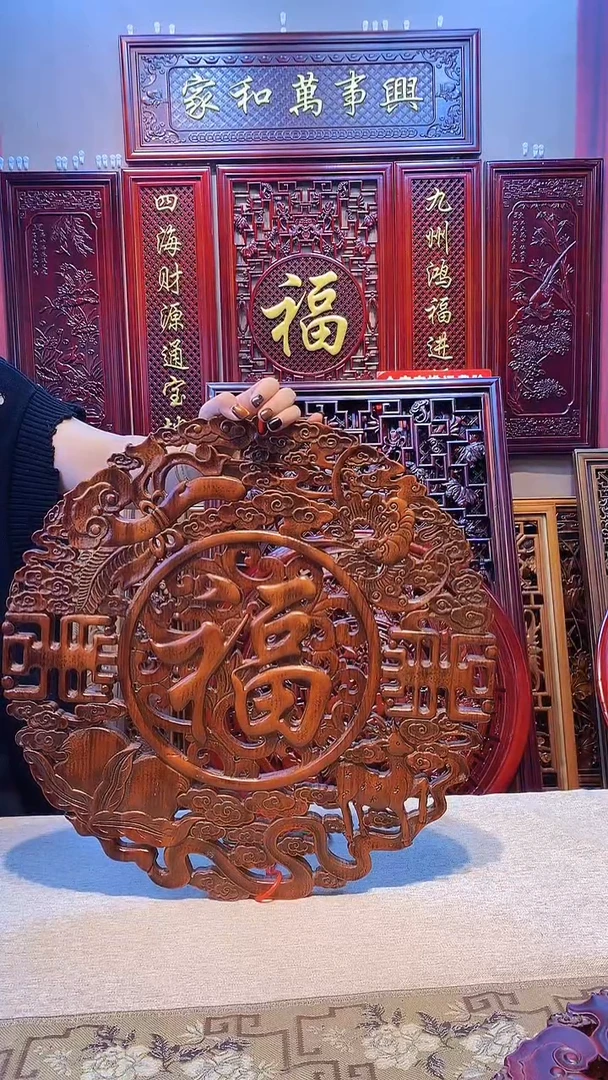 家和萬事興
四海财源通宝
福
九州鸿福进
福